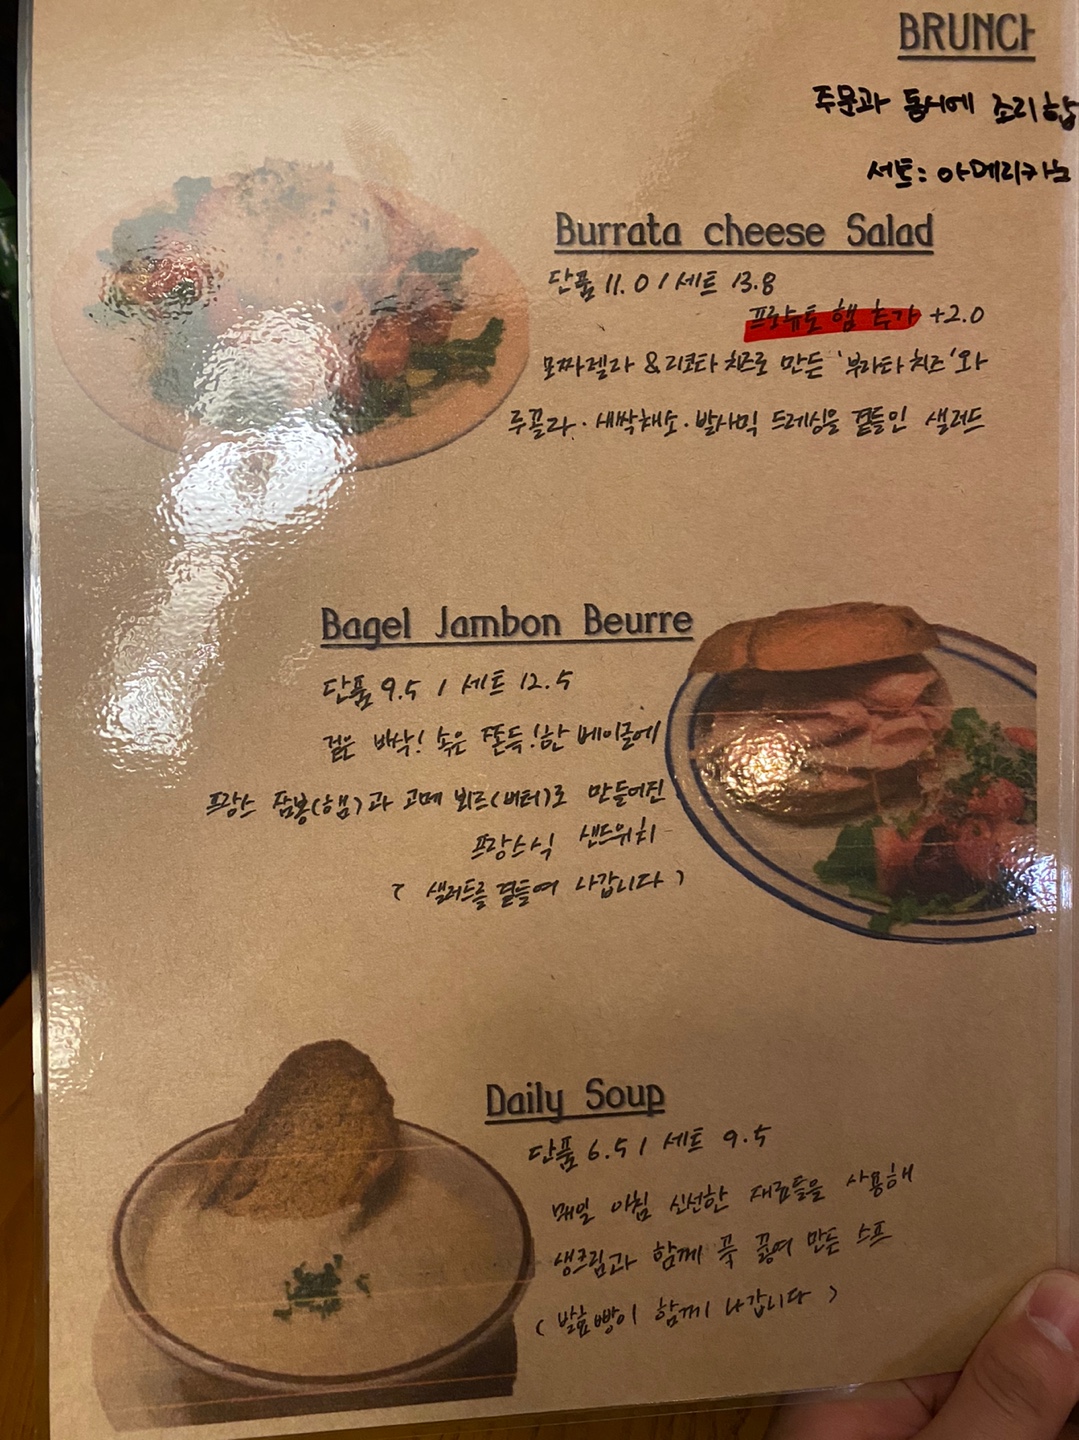 BRUNCH
주문과 동시에 조리합
세트: 아메리카노
Burrata cheese Salad
단품 11.0 / 세트 13.8
프로슈토 햄 추가 +2.0
모짜렐라 & 리코타 치즈로 만든 '부라타 치즈'와
루꼴라 · 새싹채소 · 발사믹 드레싱을 곁들인 샐러드
Bagel Jambon Beurre
단품 9.5 / 세트 12.5
겉은 바삭! 속은 쫀득!한 베이글에
프랑스 잠봉(햄)과 고메 뵈르(버터)로 만들어진
프랑스식 샌드위치
( 샐러드를 곁들여 나갑니다 )
Daily Soup
단품 6.5 / 세트 9.5
매일 아침 신선한 재료들을 사용해
생크림과 함께 푹 끓여 만든 스프
( 발효빵이 함께 나갑니다 )